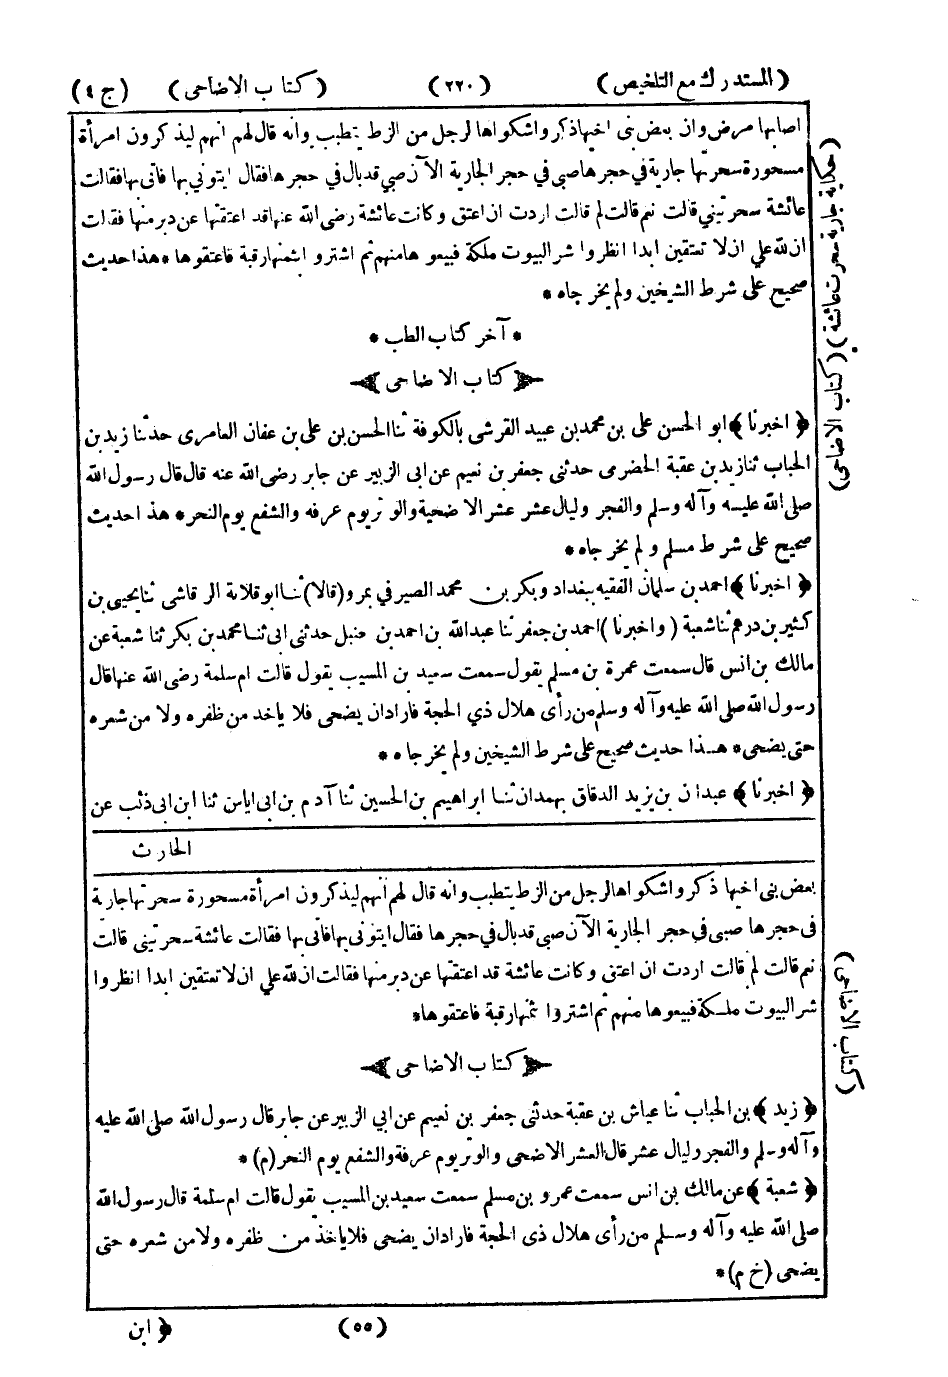 (المستدرك مع التلخيص) (٢٢٠) (كتاب الاضاحى) (ج ٤)
اصابها مرض وان بعض بنى اخيها ذكروا شكواها لرجل من الزط يتطبب وانه قال لهم انهم ليذكرون امرأة
مسحورة سحرتها جارية في حجرها صبي في حجر الجارية الآن صبي قد بال في حجرها فقال ايتوني بها فأتى بها فقالت
عائشة سحرتيني قالت نعم قالت لم قالت اردت ان اعتق وكانت عائشة رضى الله عنها قد اعتقتها عن دبر منها فقالت
ان لله علي ان لا تعتقين ابدا انظروا شر البيوت ملكة فبيعوها منهم ثم اشتروا بثمنها رقبة فاعتقوها * هذا حديث
صحيح على شرط الشيخين ولم يخرجاه *
* آخر كتاب الطب *
كتاب الاضاحى
﴿ اخبرنا ﴾ ابو الحسن على بن محمد بن عبيد القرشى بالكوفة ثنا الحسن بن على بن عفان العامرى حدثنا زيد بن
الحباب ثنا زيد بن عقبة الحضرمى حدثنى جعفر بن نعيم عن ابى الزبير عن جابر رضى الله عنه قال قال رسول الله
صلى الله عليه وآله وسلم والفجر وليال عشر عشر الاضحية والوتر يوم عرفه والشفع يوم النحر * هذا حديث
صحيح على شرط مسلم ولم يخرجاه *
﴿ اخبرنا ﴾ احمد بن سلمان الفقيه ببغداد وبكر بن محمد الصيرفي بمرو (قالا) ثنا ابو قلابة الرقاشى ثنا يحيى بن
كثير بن درهم ثنا شعبة (واخبرنا) احمد بن جعفر ثنا عبد الله بن احمد بن حنبل حدثنى ابى ثنا محمد بن بكر ثنا شعبة عن
مالك بن انس قال سمعت عمرة بن مسلم يقول سمعت سعيد بن المسيب يقول قالت ام سلمة رضى الله عنها قال
رسول الله صلى الله عليه وآله وسلم من رأى هلال ذي الحجة فاراد ان يضحى فلا ياخد من ظفره ولا من شعره
حتى يضحى * هذا حديث صحيح على شرط الشيخين ولم يخرجاه *
﴿ اخبرنا ﴾ عبدان بن يزيد الدقاق بهمدان ثنا ابراهيم بن الحسين ثنا آدم بن ابى اياس ثنا ابن ابى ذئب عن
الحارث
بعض بنى اخيها ذكروا شكواها لرجل من الزط يتطبب وانه قال لهم انهم ليذكرون امرأة مسحورة سحرتها جارية
فى حجرها صبى فى حجر الجارية الآن صبى قد بال في حجرها فقال ايتونى بها فأتى بها فقالت عائشة سحرتينى قالت
نعم قالت لم قالت اردت ان اعتق وكانت عائشة قد اعتقتها عن دبر منها فقالت ان لله علي ان لا تعتقين ابدا انظروا
شر البيوت ملكة فبيعوها منهم ثم اشتروا بثمنها رقبة فاعتقوها *
كتاب الاضاحى
﴿ زيد ﴾ بن الحباب ثنا عياش بن عقبة حدثنى جعفر بن نعيم عن ابي الزبير عن جابر قال رسول الله صلى الله عليه
وآله وسلم والفجر وليال عشر قال العشر الاضحى والوتر يوم عرفة والشفع يوم النحر (م) *
﴿ شعبة ﴾ عن مالك بن انس سمعت عمرو بن مسلم سمعت سعيد بن المسيب يقول قالت ام سلمة قال رسول الله
صلى الله عليه وآله وسلم من رأى هلال ذى الحجة فاراد ان يضحى فلا ياخذ من ظفره ولا من شعره حتى
يضحى (خ م) *
(٥٥) ﴿ ابن
(حكاية جارية سحرت عائشة) (كتاب الاضاحى)
(كتاب الاضاحى)